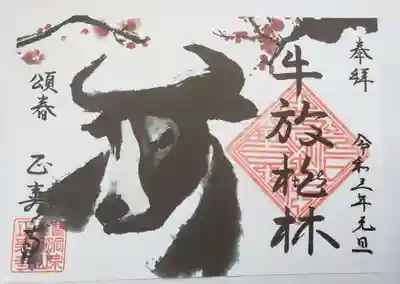 奉拝
令和三年元旦
牛放桃林
頌春
正寿